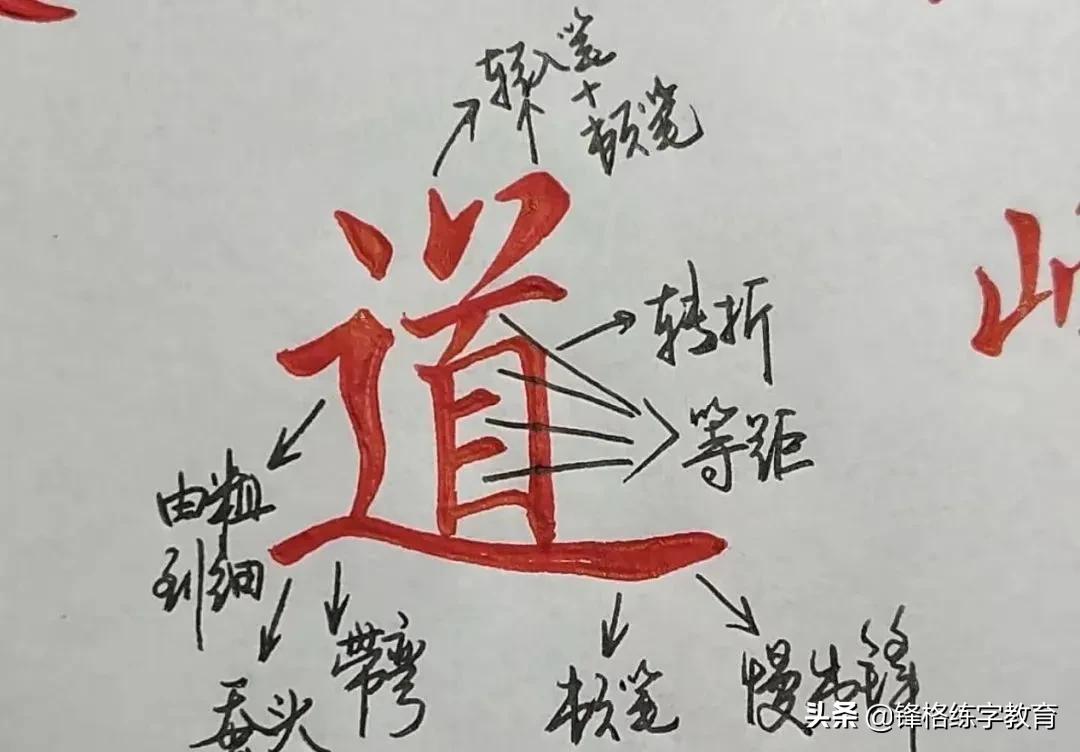 轻入笔
+
顿笔
道
转折
等距
山
由粗
到细
蚕头
带弯
顿笔
慢出锋
头条 @锋格练字教育